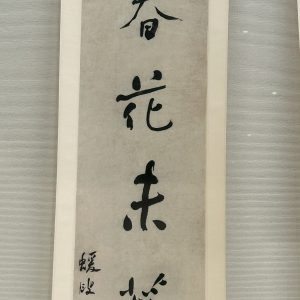 春花未
蝯叟